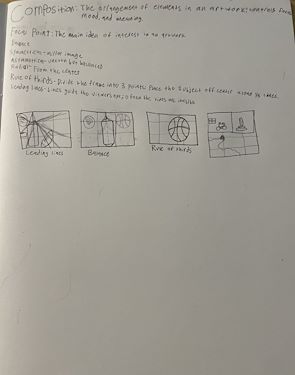 Composition: The arrangement of elements in an artwork; controls focus,
mood, and meaning.
Focal Point: The main idea of interest in an artwork
Balance
Symmetrical - mirror image
Asymmetrical - uneven but balanced
Radial - From the center
Rule of thirds - Divide the frame into 3 points; Place the subject off center along the lines.
Leading lines - Lines guide the viewers eye;
Leading lines
Balance
Rule of thirds